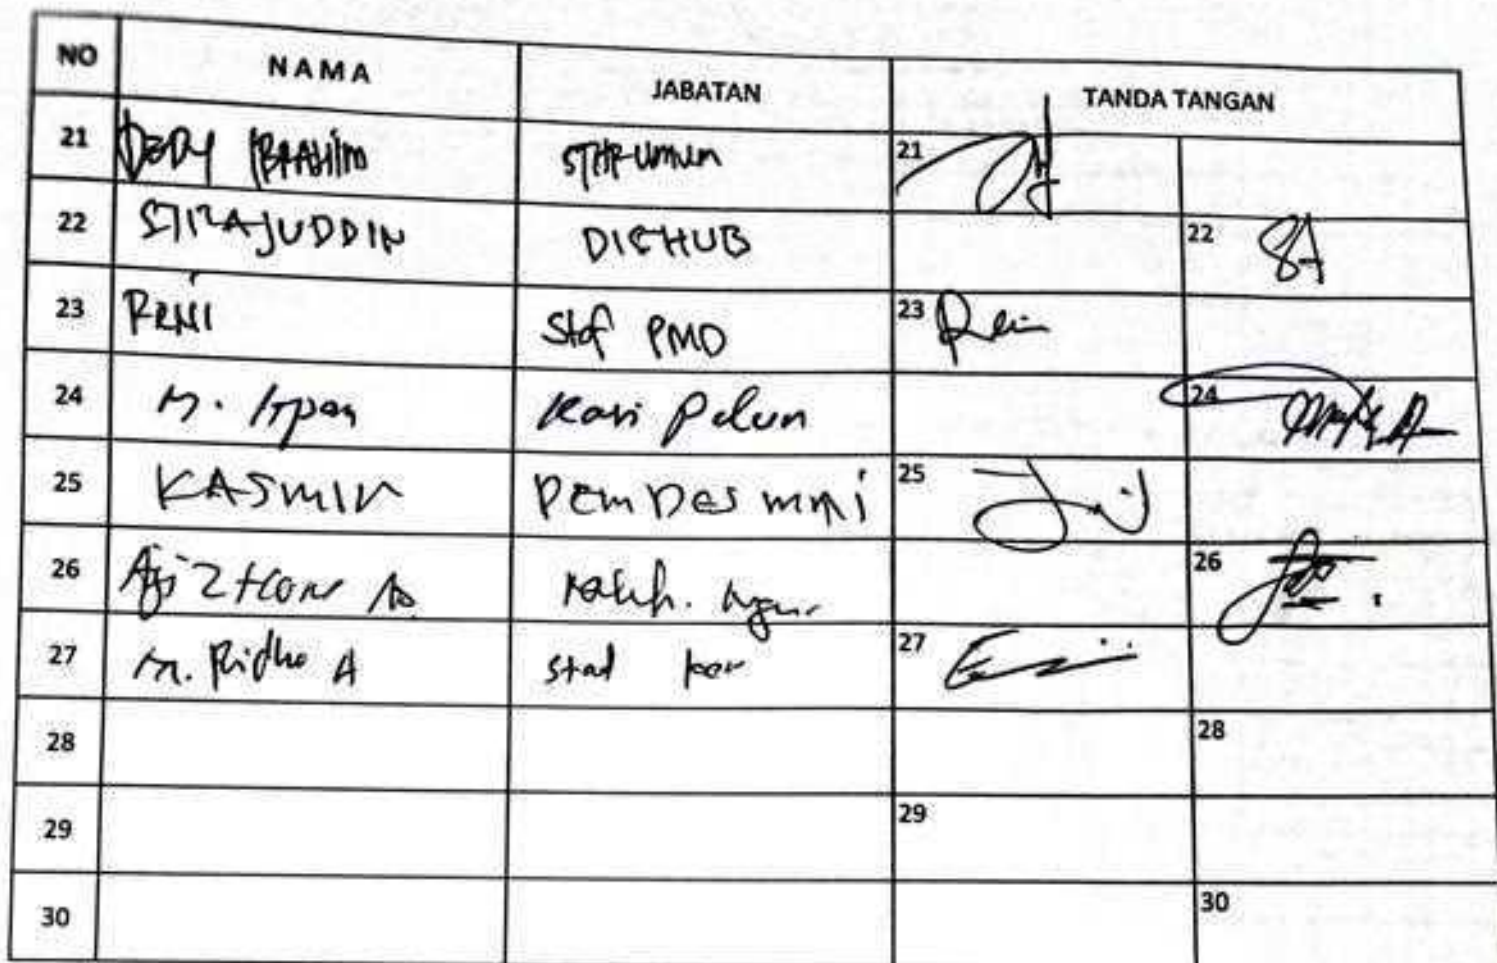 NO NAMA JABATAN TANDA TANGAN
21 DEDY IBRAHIM STAF UMUM 21
22 SIRAJUDDIN DISHUB 22
23 RENI Staf PMD 23 Reni
24 M. Irpan Kasi Pelum 24
25 KASMIR PEMDES MMI 25
26 26
27 M. Ridho A staf 27
28 28
29 29
30 30